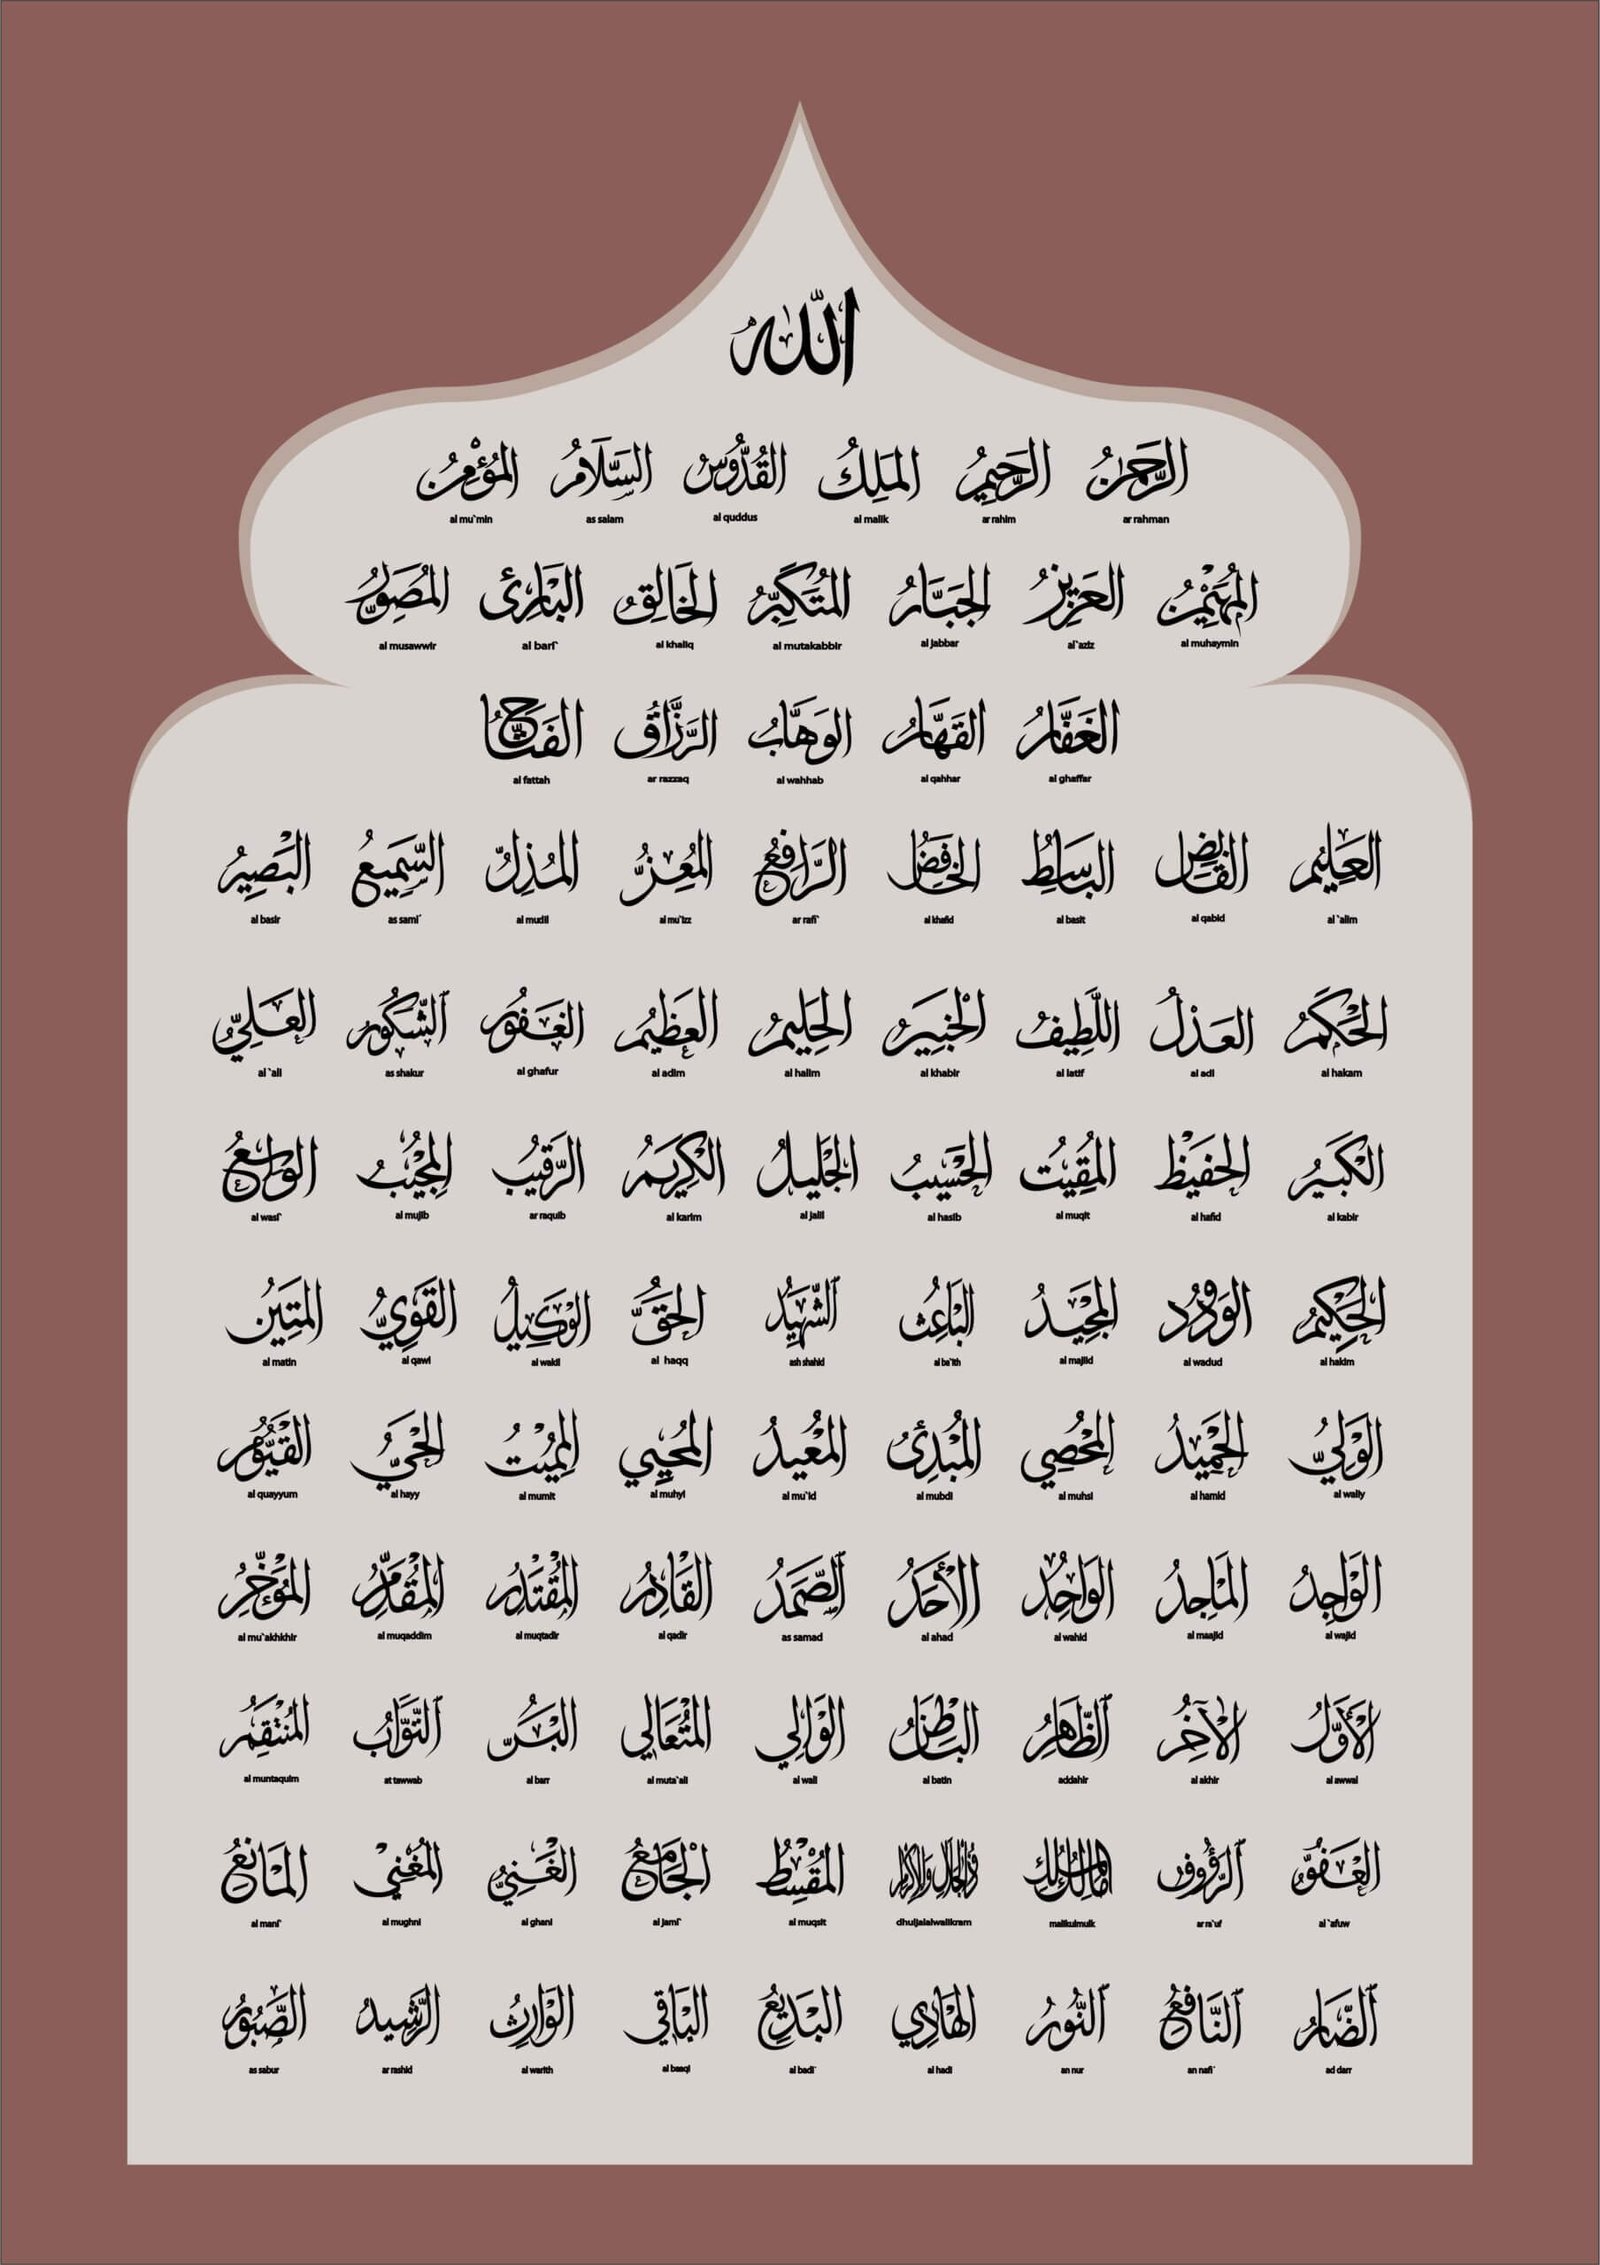 الله
الرَّحْمٰنُ الرَّحِيمُ المَلِكُ القُدُّوسُ السَّلَامُ المُؤْمِنُ
ar rahman ar rahim al malik al quddus as salam al mu`min
المُهَيْمِنُ العَزِيزُ الجَبَّارُ المُتَكَبِّرُ الخَالِقُ البَارِئُ المُصَوِّرُ
al muhaymin al`aziz al jabbar al mutakabbir al khaliq al bari` al musawwir
الغَفَّارُ القَهَّارُ الوَهَّابُ الرَّزَّاقُ الفَتَّاحُ
al ghaffar al qahhar al wahhab ar razzaq al fattah
العَلِيْمُ القَابِضُ البَاسِطُ الخَافِضُ الرَّافِعُ المُعِزُّ المُذِلُّ السَّمِيعُ البَصِيرُ
al `alim al qabid al basit al khafid ar rafi` al mu`izz al mudil as sami` al basir
الحَكَمُ العَدْلُ اللَّطِيفُ الْخَبِيرُ الحَلِيمُ العَظِيمُ الغَفُورُ الشَّكُورُ العَلِيُّ
al hakam al adl al latif al khabir al halim al adim al ghafur as shakur al `ali
الكَبِيرُ الحَفِيظُ المُقِيتُ الحَسِيبُ الجَلِيلُ الكَرِيمُ الرَّقِيبُ المُجِيبُ الوَاسِعُ
al kabir al hafid al muqit al hasib al jalil al karim ar raquib al mujib al wasi`
الحَكِيمُ الوَدُودُ المَجِيدُ البَاعِثُ الشَّهِيدُ الحَقُّ الوَكِيلُ القَوِيُّ المَتِينُ
al hakim al wadud al majiid al ba`ith ash shahid al haqq al wakil al qawi al matin
الوَلِيُّ الحَمِيدُ المُحْصِي المُبْدِئُ المُعِيدُ المُحْيِي المُمِيتُ الحَيُّ القَيُّومُ
al waliy al hamid al muhsi al mubdi al mu`id al muhyi al mumit al hayy al quayyum
الوَاجِدُ المَاجِدُ الوَاحِدُ الأَحَدُ الصَّمَدُ القَادِرُ المُقْتَدِرُ المُقَدِّمُ المُؤَخِّرُ
al wajid al maajid al wahid al ahad as samad al qadir al muqtadir al muqaddim al mu`akhkhir
الأَوَّلُ الآخِرُ الظَّاهِرُ البَاطِنُ الوَالِي المُتَعَالِي البَرُّ التَّوَّابُ المُنْتَقِمُ
al awwal al akhir addahir al batin al wali al muta`ali al barr at tawwab al muntaquim
العَفُوُّ الرَّؤُوفُ مَالِكُ المُلْكِ ذُو الجَلَالِ وَالإِكْرَامِ المُقْسِطُ الجَامِعُ الغَنِيُّ المُغْنِي المَانِعُ
al `afuw ar ra`uf malikulmulk dhuljalalwalikram al muqsit al jami` al ghani al mughni al mani`
الضَّارُ النَّافِعُ النُّورُ الهَادِي البَدِيعُ البَاقِي الوَارِثُ الرَّشِيدُ الصَّبُورُ
ad darr an nafi` an nur al hadi al badi` al baaqi al warith ar rashid as sabur